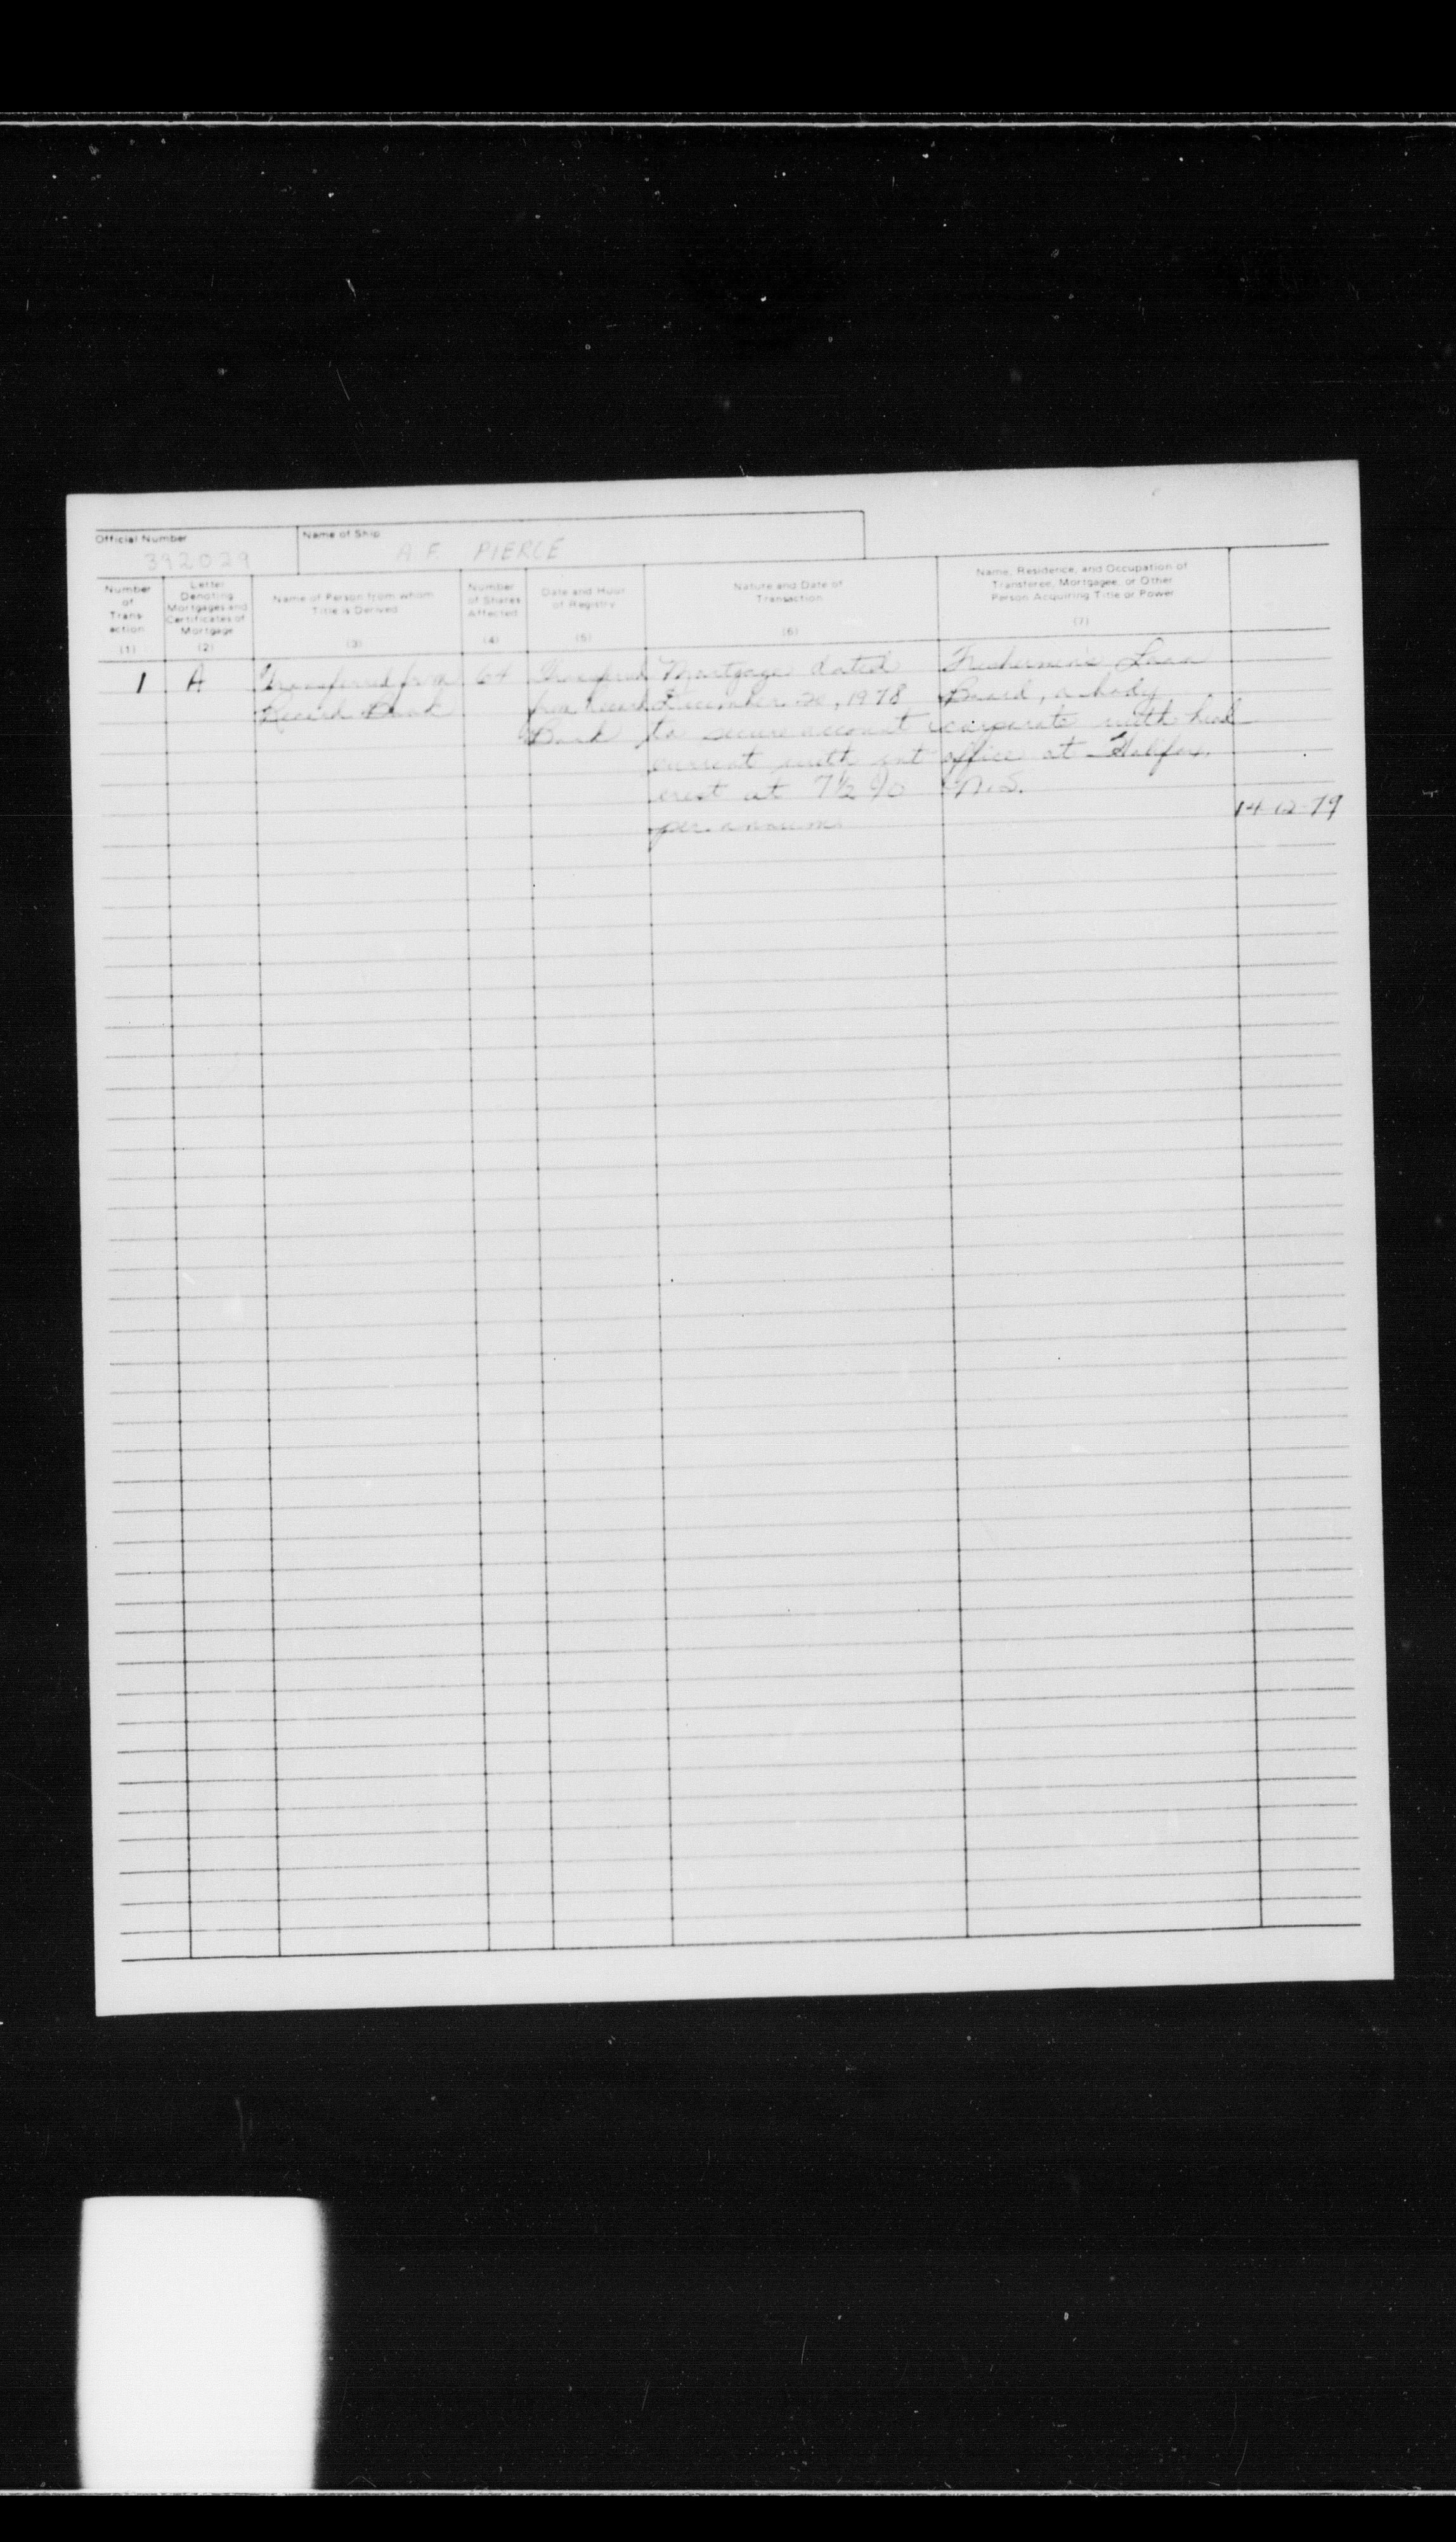 Official Number
Name of Ship
392029
A.F. PIERCE
Number of Trans-action (1)
Letter Denoting Mortgages and Certificates of Mortgage (2)
Name of Person from whom Title is Derived (3)
Number of Shares Affected (4)
Date and Hour of Registry (5)
Nature and Date of Transaction (6)
Name, Residence, and Occupation of Transferee, Mortgagee, or Other Person Acquiring Title or Power (7)
1
A
Transferred from
Record Book
64
Transferred
from Record
Book
Mortgage dated
December 20, 1978
to secure account
current with int
erest at 7 1/2 %
per annum
Fishermen's Loan
Board, a body
corporate with head
office at Halifax,
N.S.
14-12-79